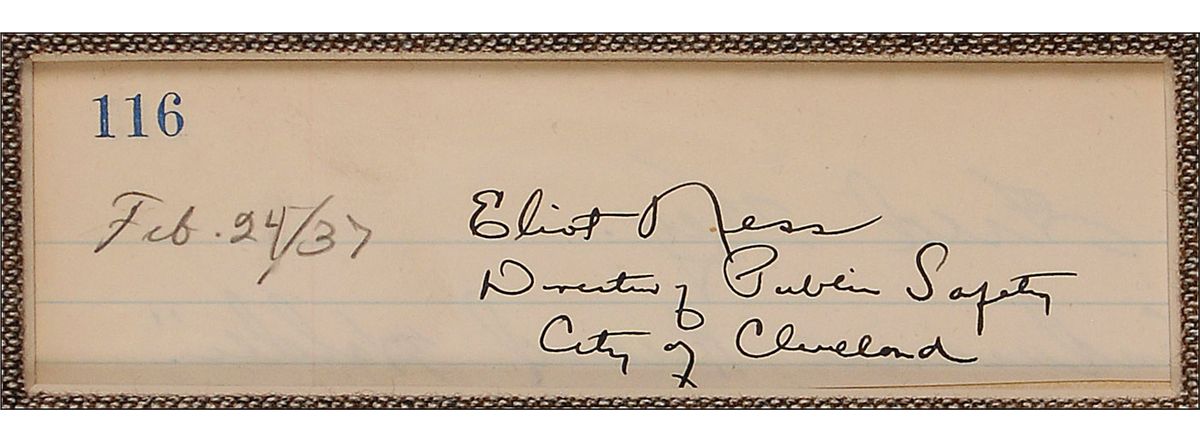 116
Feb. 24/37
Eliot Ness
Director of Public Safety
City of Cleveland